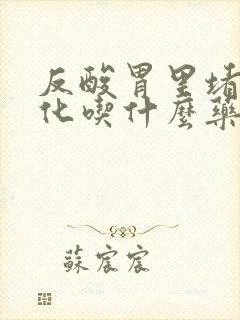 反酸胃里堵
化喫什麼藥
蘇宸宸